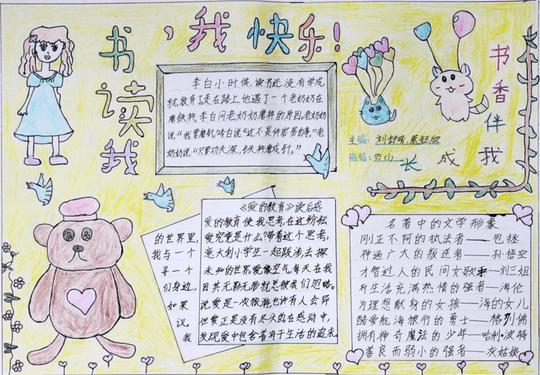 我读书，我快乐！
李白小时候，读书还没有学成
就放弃了，走在路上，他遇了一个老奶奶在
磨铁杵，李白问老奶奶磨杵的原因，老奶奶
说"我要磨针"，李白说"这不是件容易的事"，老奶
奶说"只要功夫深，铁杵磨成针。"
书香伴我
成长
主编：刘舒晴
班级：
《爱的教育》读后感
爱的教育使我思考，在这纷纭
的世界里，爱究竟是什么？带着这个思考，
我与一个意大利小学生一起跋涉去探
寻一个未知的世界爱像空气每天在我
们身边，因其无影无形就总被我们忽略。
如果说爱是一次旅游，也许有人会异
议，但爱正是没有尽头的在感动中，
我发现爱中包含着对于生活的追求
名著中的文学形象
刚正不阿的执法者——包拯
神通广大的叛逆者——孙悟空
才智过人的民间女歌手——刘三姐
对生活充满热情的强者——海伦
为理想献身的女孩——海的女儿
酷爱航海旅行的勇士——格列佛
拥有神奇魔法的少年——哈利·波特
善良而弱小的强者——灰姑娘